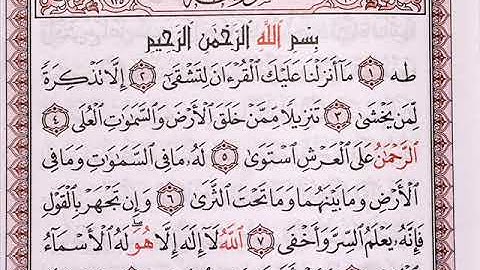 بِسْمِ اللَّهِ الرَّحْمَٰنِ الرَّحِيمِ
طه ١ مَا أَنزَلْنَا عَلَيْكَ الْقُرْءَانَ لِتَشْقَىٰ ٢ إِلَّا تَذْكِرَةً
لِّمَن يَخْشَىٰ ٣ تَنزِيلًا مِّمَّنْ خَلَقَ الْأَرْضَ وَالسَّمَٰوَٰتِ الْعُلَى ٤
الرَّحْمَٰنُ عَلَى الْعَرْشِ اسْتَوَىٰ ٥ لَهُۥ مَا فِي السَّمَٰوَٰتِ وَمَا فِي
الْأَرْضِ وَمَا بَيْنَهُمَا وَمَا تَحْتَ الثَّرَىٰ ٦ وَإِن تَجْهَرْ بِالْقَوْلِ
فَإِنَّهُۥ يَعْلَمُ السِّرَّ وَأَخْفَى ٧ اللَّهُ لَا إِلَٰهَ إِلَّا هُوَ لَهُ الْأَسْمَاءُ